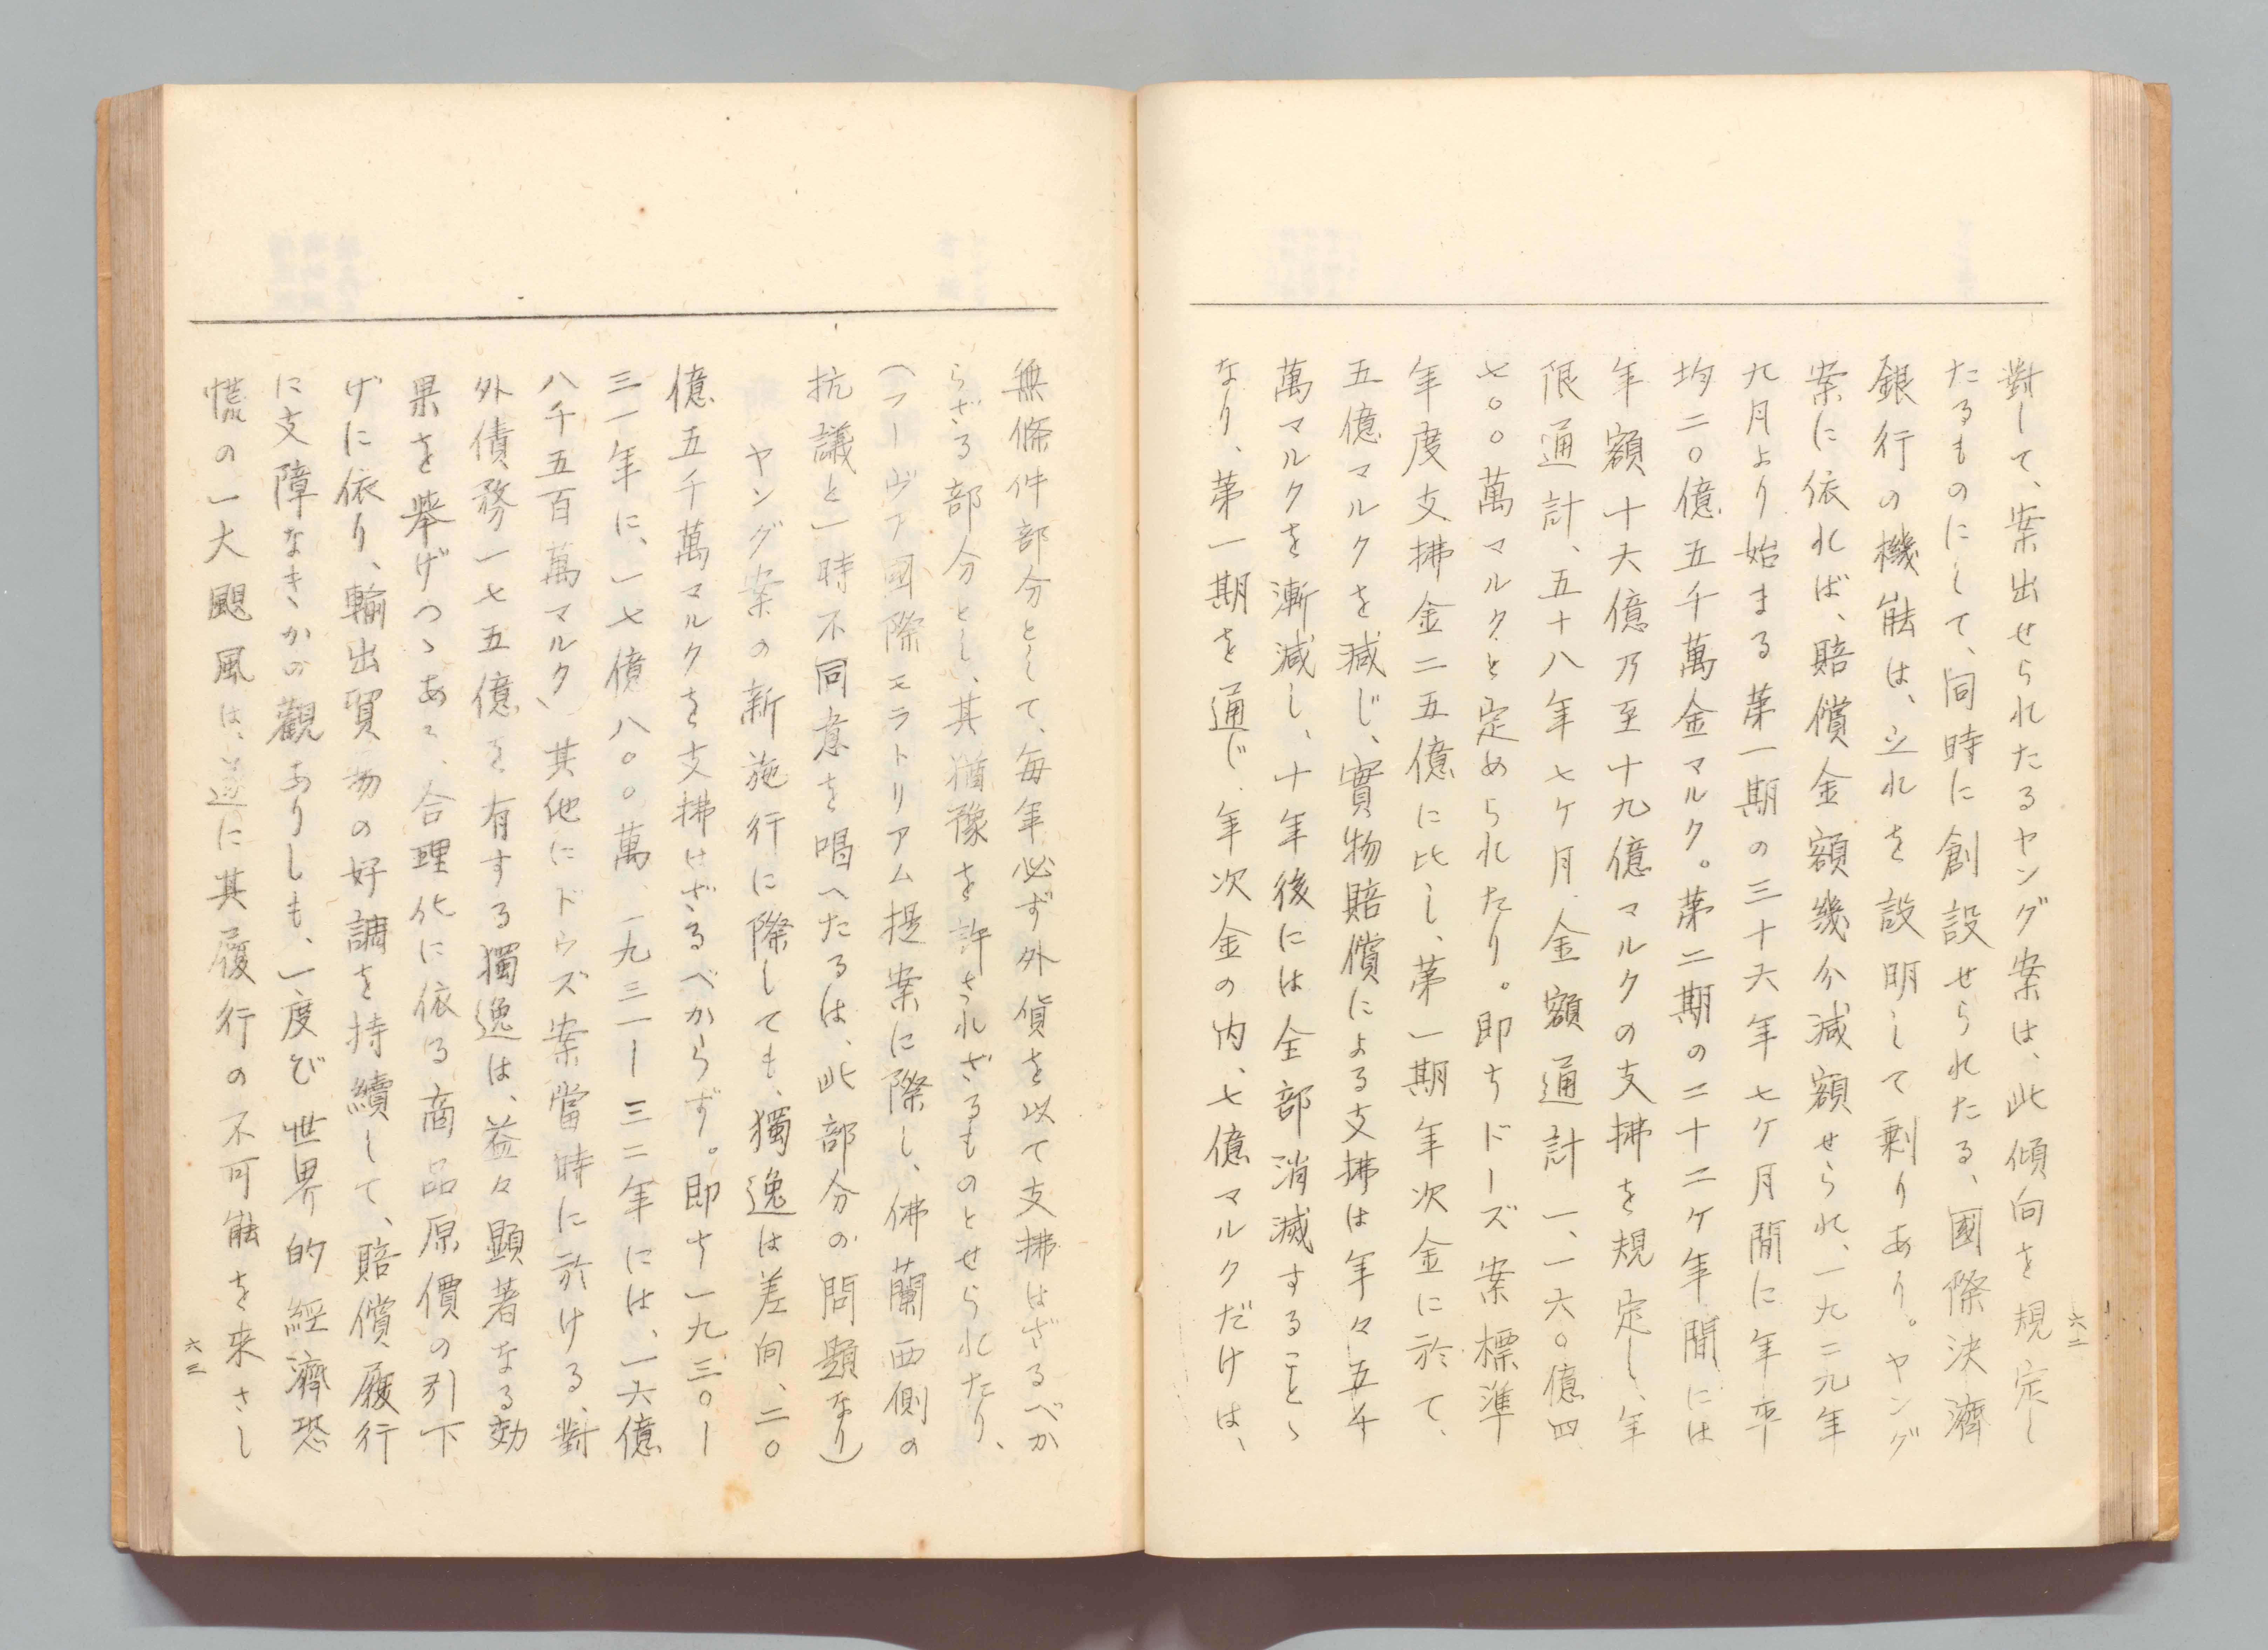 對して、案出せられたるヤング案は、此傾向を規定し
たるものにして、同時に創設せられたる、國際決濟
銀行の機能は、之れを設明して剰りあり。ヤング
案に依れば、賠償金額幾分減額せられ、一九二九年
九月より始まる第一期の三十六年七ケ月間に年平
均二〇億五千萬金マルク。第二期の二十二ケ年間には
年額十六億乃至十九億マルクの支拂を規定し、年
限通計、五十八年七ケ月、金額通計一、一六〇億四
七〇〇萬マルクと定められたり。即ちドーズ案標準
年度支拂金二五億に比し、第一期年次金に於て、
五億マルクを減じ、實物賠償による支拂は年々五千
萬マルクを漸減し、十年後には全部消滅することゝ
なり、第一期を通じ、年次金の内、七億マルクだけは、
六二
無條件部分として、毎年必ず外貨を以て支拂はざるべか
らざる部分とし、其猶豫を許されざるものとせられたり、
(フーヴア國際モラトリアム提案に際し、佛蘭西側の
抗議と一時不同意を唱へたるは、此部分の問題なり)
ヤング案の新施行に際しても、獨逸は差向、二〇
億五千萬マルクを支拂はざるべからず。即ち一九三〇ー
三一年に、一七億八〇〇萬、一九三一ー三二年には、一六億
八千五百萬マルク、其他にドウズ案當時に於ける、對
外債務一七五億を有する獨逸は、益々顯著なる効
果を擧げつゝあつて、合理化に依る商品原價の引下
げに依り、輸出貿易の好調を持續して、賠償履行
に支障なきかの觀ありしも、一度び世界的經濟恐
慌の一大颶風は、遂に其履行の不可能を来さし
六三